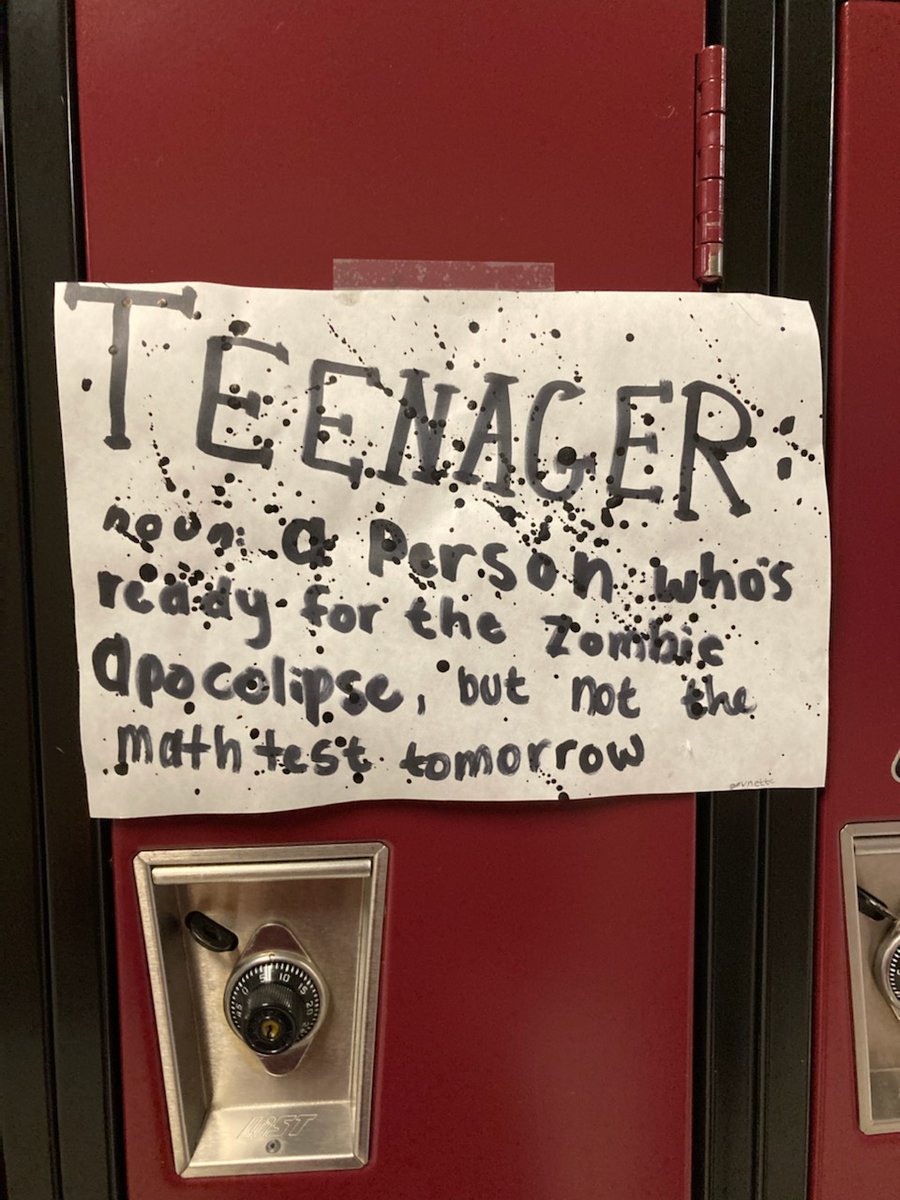 TEENAGER:
noun: a person who's
ready for the zombie
apocolipse, but not the
math test tomorrow
5 10 15 20